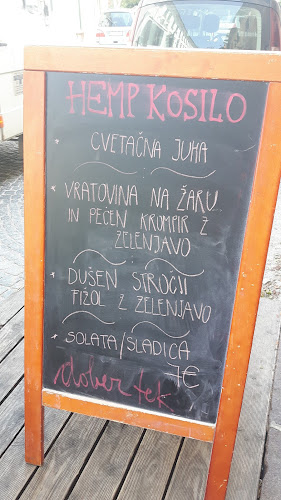 HEMP KOSILO
* CVETAČNA JUHA
* VRATOVINA NA ŽARU
IN PEČEN KROMPIR Z
ZELENJAVO
* DUŠEN STROČJI
FIŽOL Z ZELENJAVO
* SOLATA/SLADICA
7€
dober tek